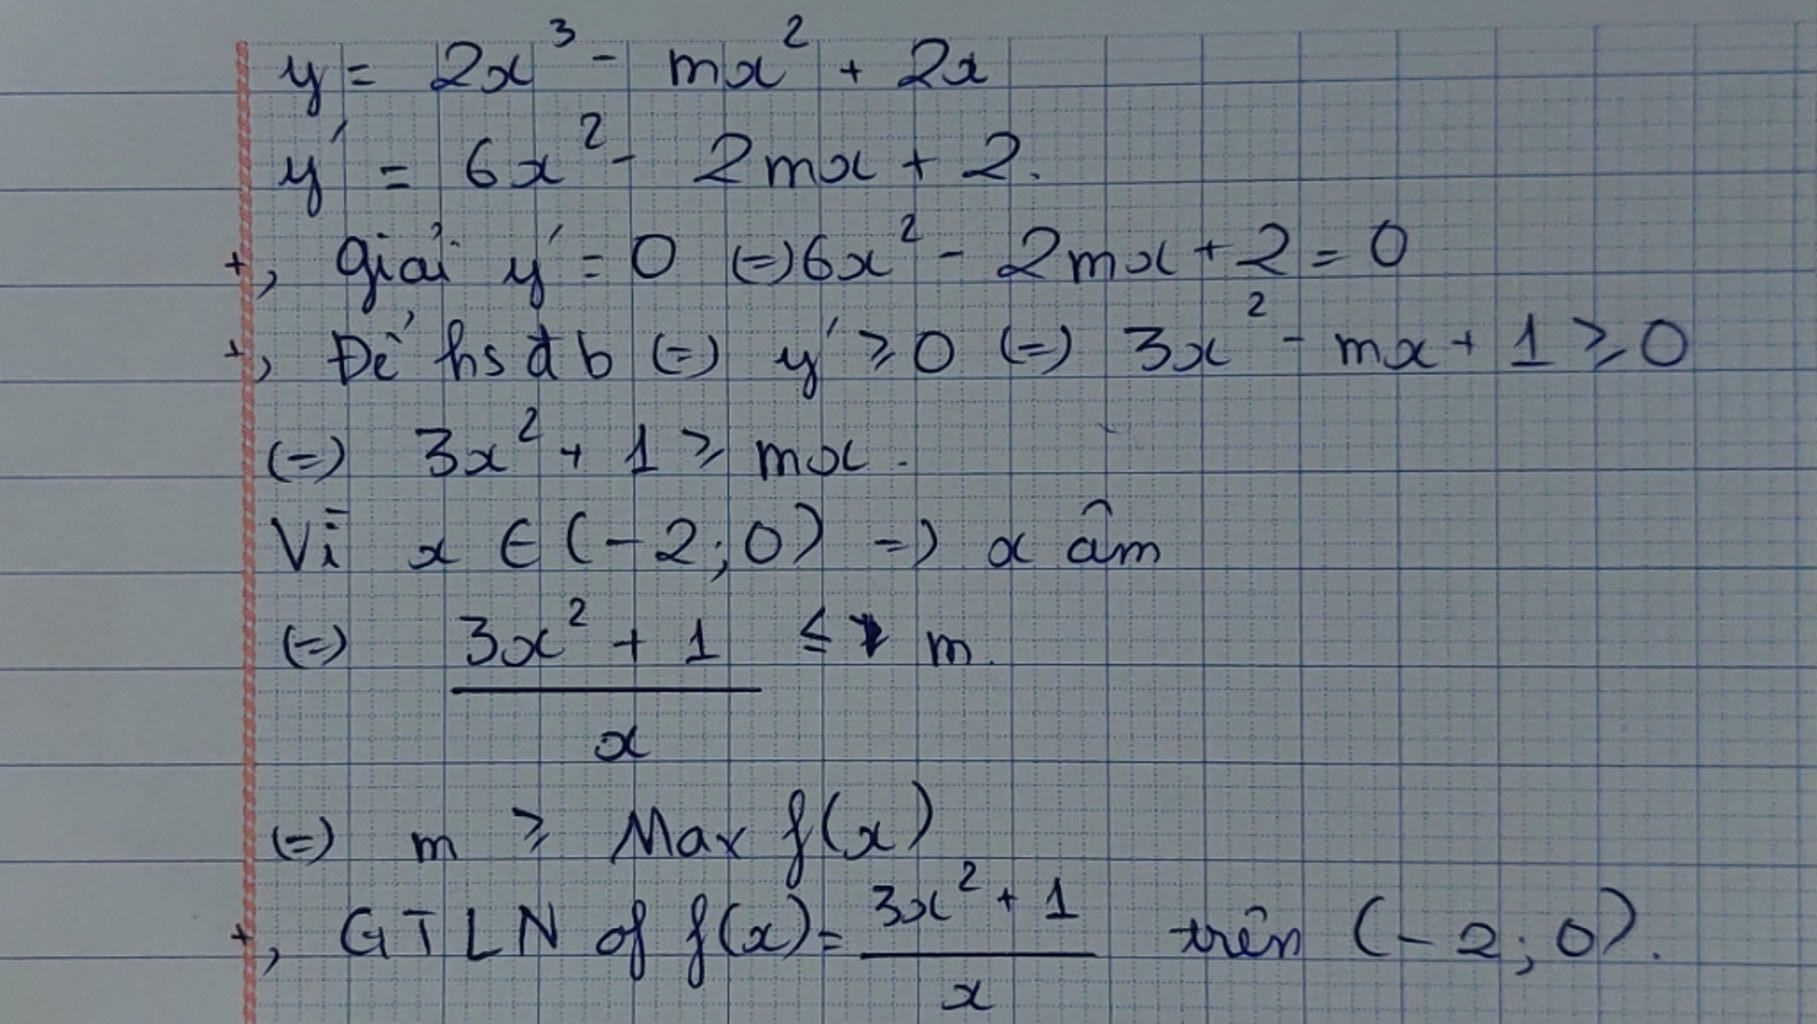 y = 2x³ - mx² + 2x
y' = 6x² - 2mx + 2.
+, giải y' = 0 (=) 6x² - 2mx + 2 = 0
+, Để hs đb (=) y' ⩾ 0 (=) 3x² - mx + 1 ⩾ 0
(=) 3x² + 1 ⩾ mx.
Vì x ∈ (-2; 0) => x âm
(=) (3x² + 1)/x ≤ m.
(=) m ⩾ Max f(x)
+, GTLN of f(x) = (3x² + 1)/x trên (-2; 0).